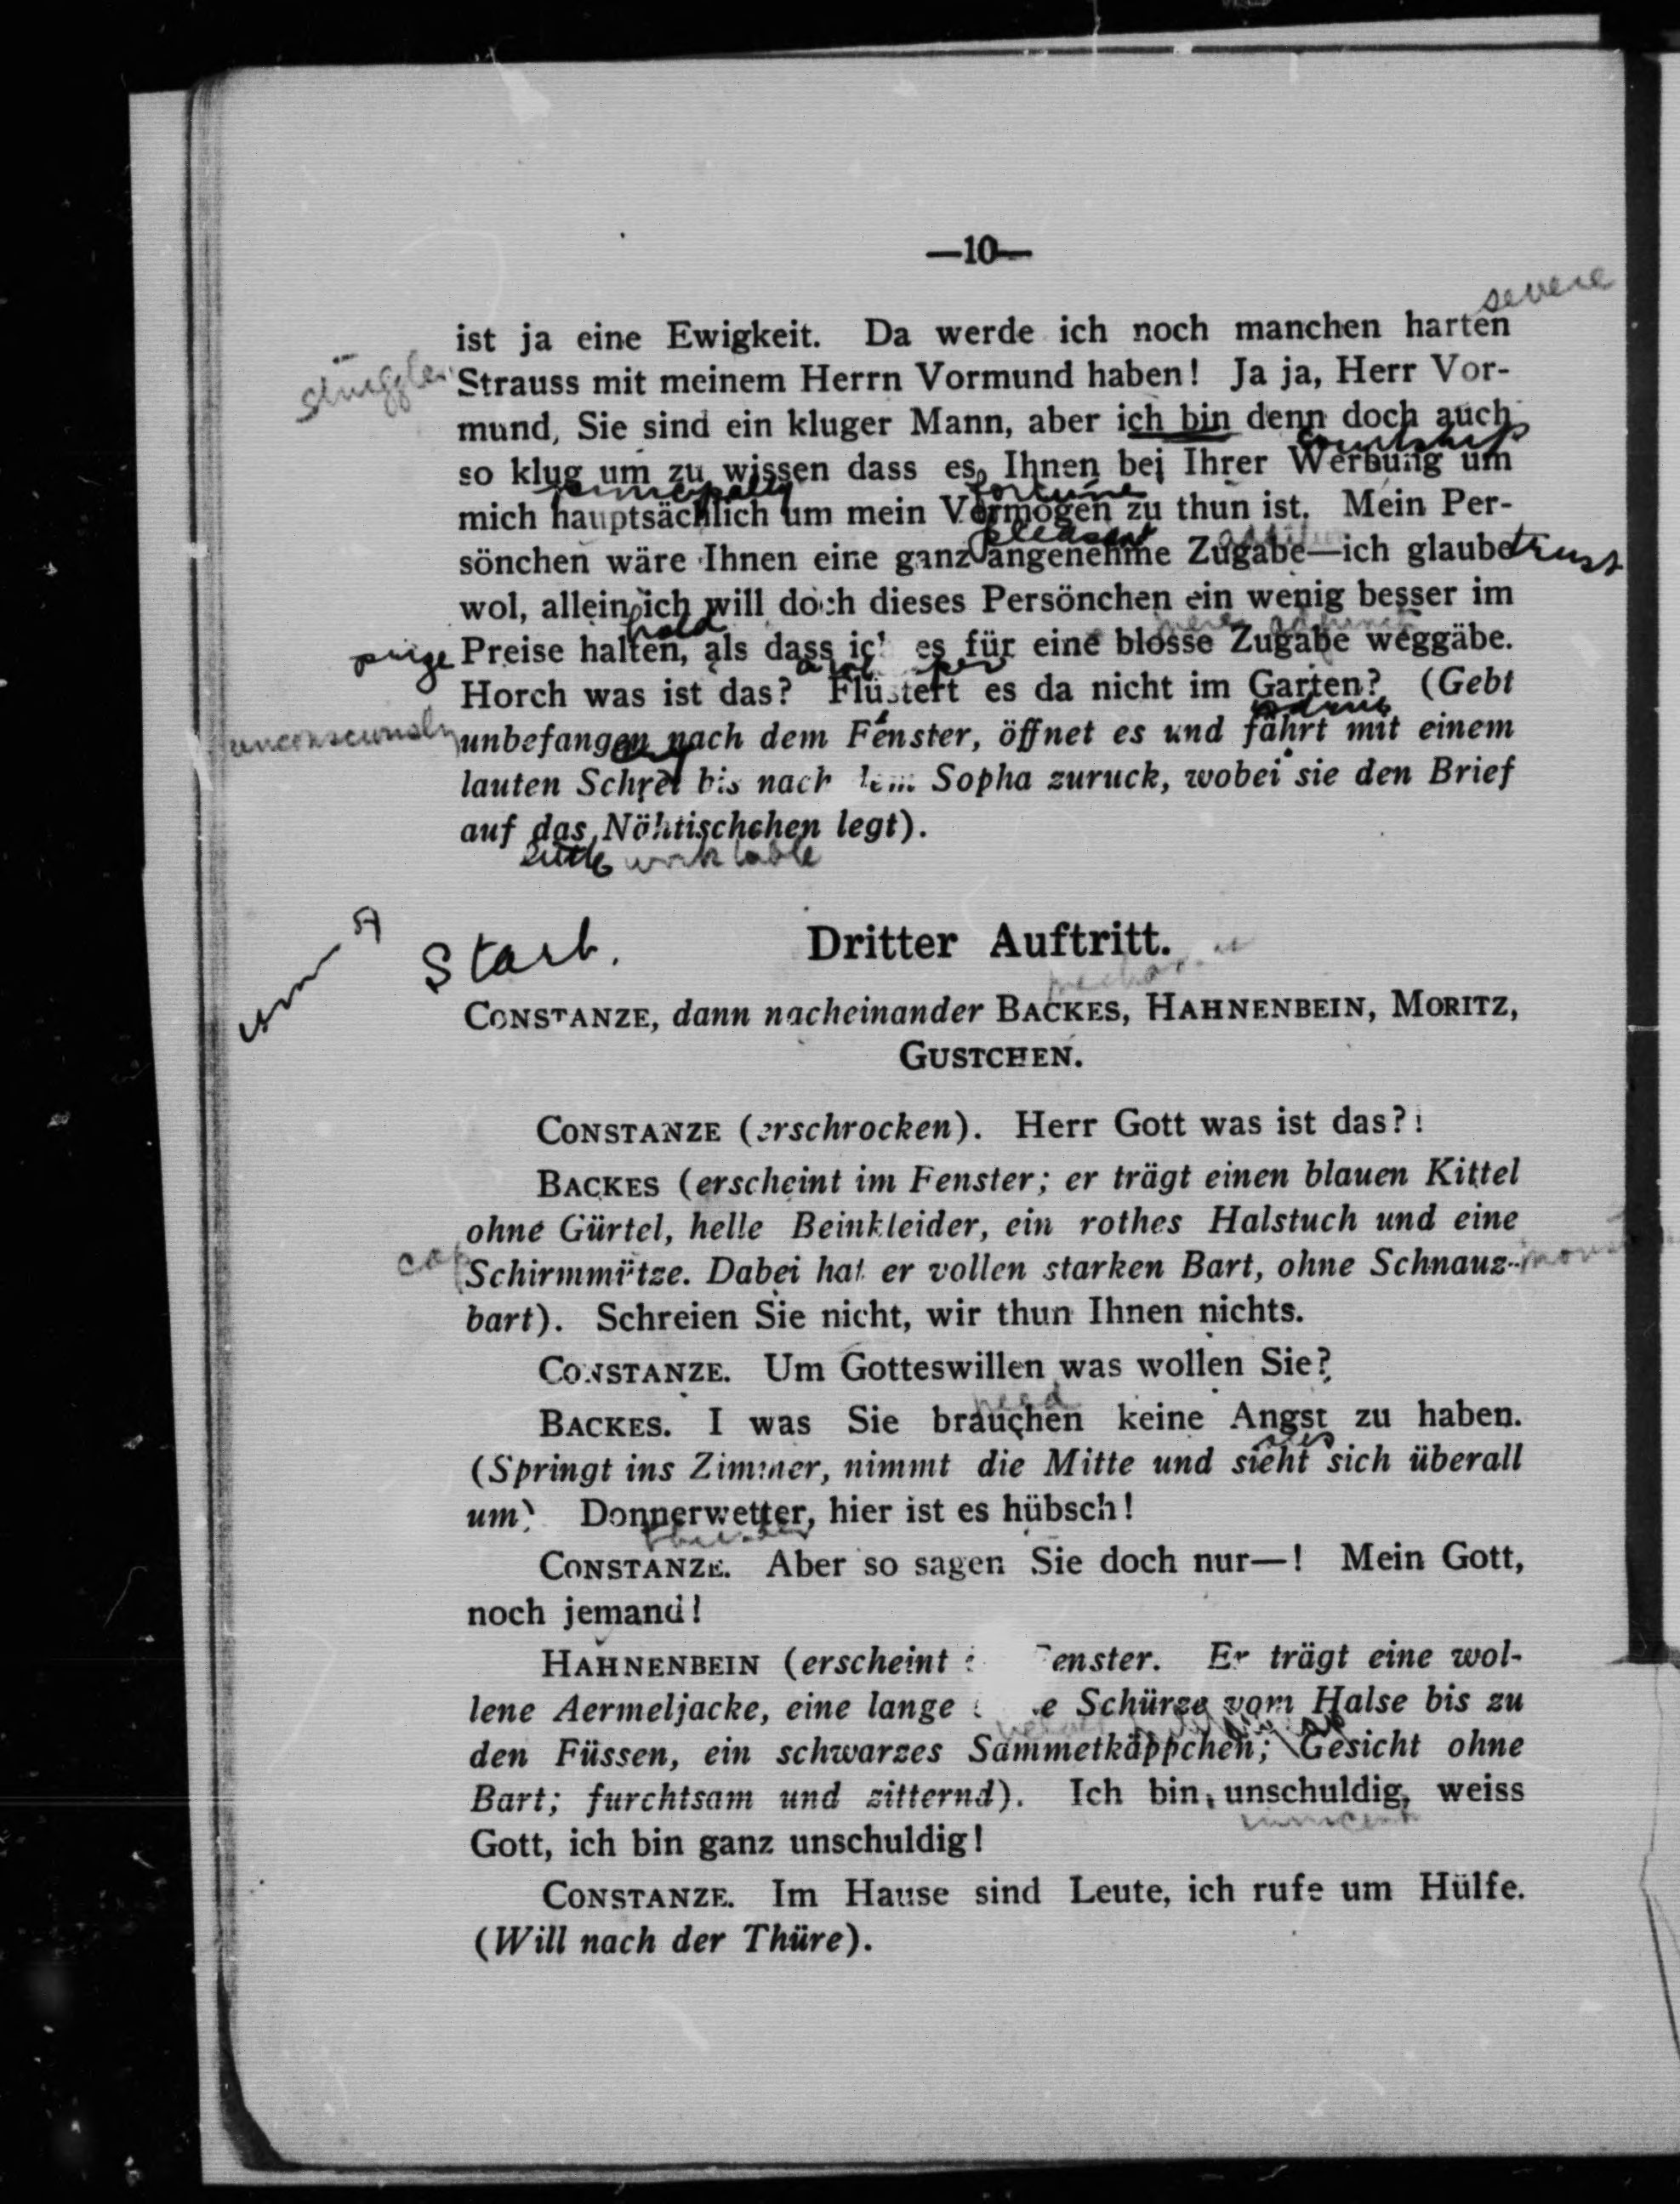 —10—
severe
ist ja eine Ewigkeit. Da werde ich noch manchen harten
struggle
Strauss mit meinem Herrn Vormund haben! Ja ja, Herr Vor-
mund, Sie sind ein kluger Mann, aber ich bin denn doch auch
courtship
so klug um zu wissen dass es Ihnen bei Ihrer Werbung um
principally fortune
mich hauptsächlich um mein Vermögen zu thun ist. Mein Per-
pleasant addition
sönchen wäre Ihnen eine ganz angenehme Zugabe—ich glaube trust
wol, allein ich will doch dieses Persönchen ein wenig besser im
hold mere
Preise halten, als dass ich es für eine blosse Zugabe weggäbe.
Horch was ist das? Flüstert es da nicht im Garten? (Gebt
unbefangen nach dem Fenster, öffnet es und fährt mit einem
cry
lauten Schrei bis nach dem Sopha zuruck, wobei sie den Brief
auf das Nöhtischchen legt).
little work table
Start.
Dritter Auftritt.
CONSTANZE, dann nacheinander BACKES, HAHNENBEIN, MORITZ,
GUSTCHEN.
CONSTANZE (erschrocken). Herr Gott was ist das?!
BACKES (erscheint im Fenster; er trägt einen blauen Kittel
ohne Gürtel, helle Beinkleider, ein rothes Halstuch und eine
cap Schirmmütze. Dabei hat er vollen starken Bart, ohne Schnauz-
bart). Schreien Sie nicht, wir thun Ihnen nichts.
CONSTANZE. Um Gotteswillen was wollen Sie?
need
BACKES. I was Sie brauchen keine Angst zu haben.
sees
(Springt ins Zimmer, nimmt die Mitte und sieht sich überall
um) Donnerwetter, hier ist es hübsch!
CONSTANZE. Aber so sagen Sie doch nur—! Mein Gott,
noch jemand!
HAHNENBEIN (erscheint enster. Er trägt eine wol-
lene Aermeljacke, eine lange Schürze vom Halse bis zu
den Füssen, ein schwarzes Sammetkäppchen; Gesicht ohne
Bart; furchtsam und zitternd). Ich bin unschuldig, weiss
innocent
Gott, ich bin ganz unschuldig!
CONSTANZE. Im Hause sind Leute, ich rufe um Hülfe.
(Will nach der Thüre).